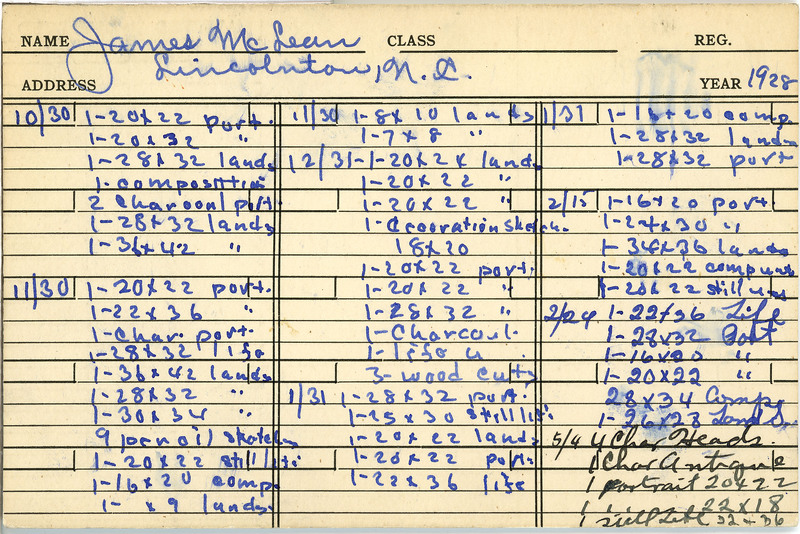 NAME James McLean CLASS REG.
ADDRESS Lincolnton, N.C. YEAR 1928
10/30 1-20x22 port.
1-20x32 "
1-28x32 lands
1-composition
2 Charcoal port.
1-28x32 lands
1-36x42 "
11/30 1-20x22 port.
1-22x36 "
1-Char. port.
1-28x32 life
1-36x42 lands
1-28x32 "
1-30x34 "
9 pencil sketches
1-20x22 still life
1-16x20 comp.
1- x9 lands.
11/30 1-8x10 lands
1-7x8 "
12/31-1-20x2x lands.
1-20x22 "
1-20x22 "
1-Decoration sketch.
18x20
1-20x22 port.
1-20x22 "
1-28x32 "
1-Charcoal.
1-life u
3-wood cuts
1/31 1-28x32 port.
1-25x30 still life
1-20x22 lands
1-20x22 port.
1-22x36 life
1/31 1-16x20 comp.
1-28x32 lands
1-28x32 port
2/15 1-16x20 port.
1-24x30 "
1-34x36 lands
1-20x22 comp
1-20x22 still
2/24 1-22x36 Life
1-28x32 Port
1-16x20 "
1-20x22 "
28x34 Comp.
1-26x28 Land S.
5/4 4 Char Heads.
1 Char Antique
1 portrait 20x22
1 22x18
1 still Life 32-36